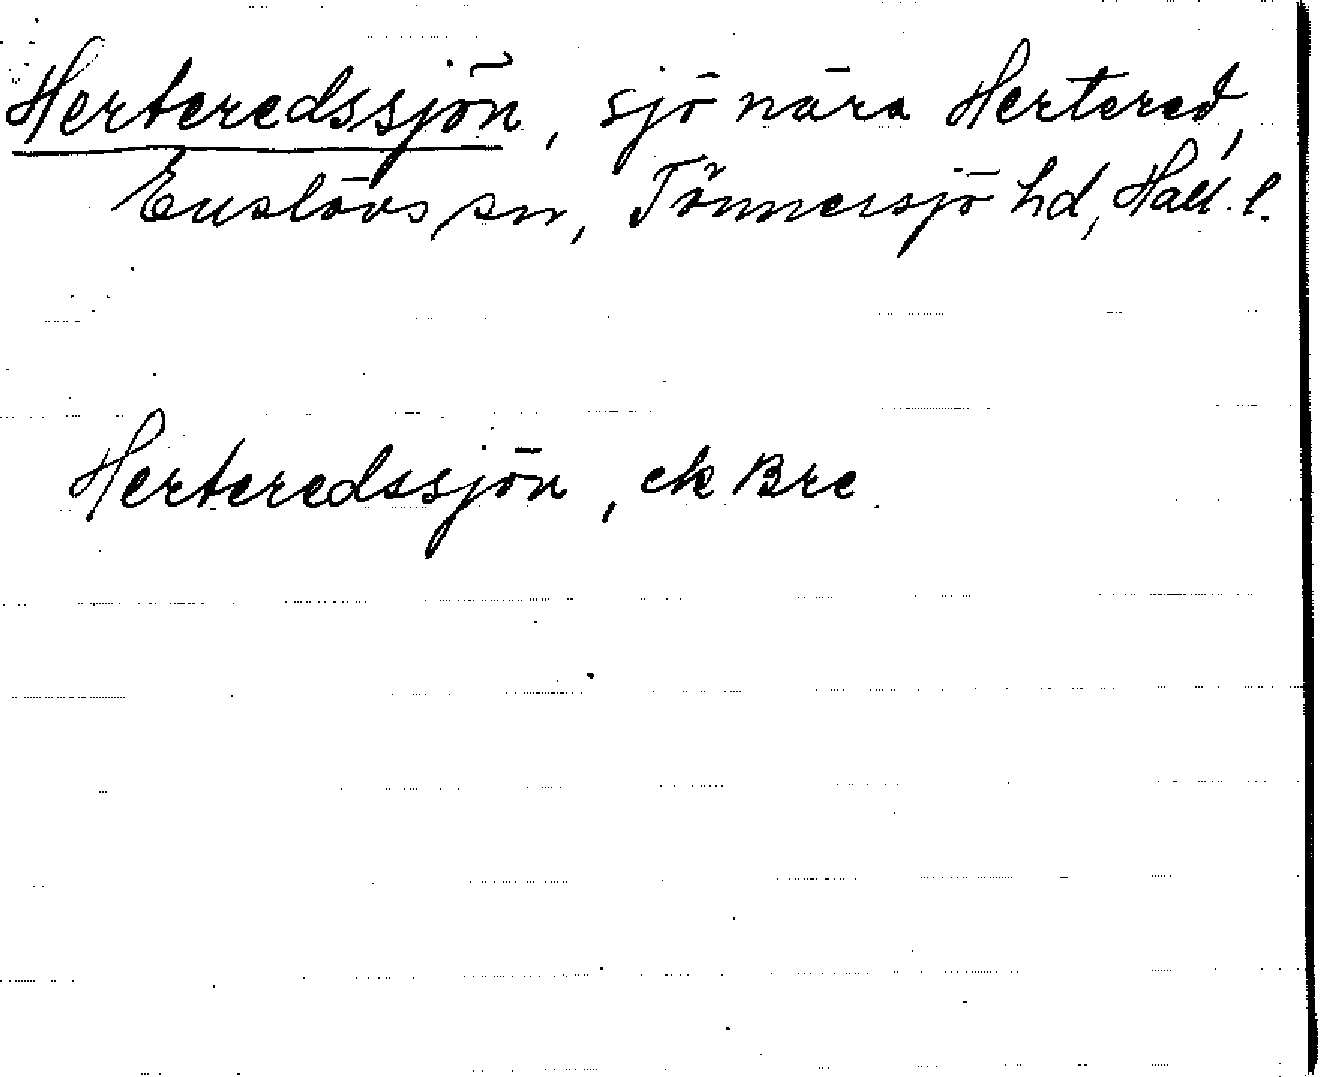 Herteredssjön, sjö nära Hertered,
Enslövs sn, Tönnersjö hd, Hall. l.
Herteredssjön, ek Bre